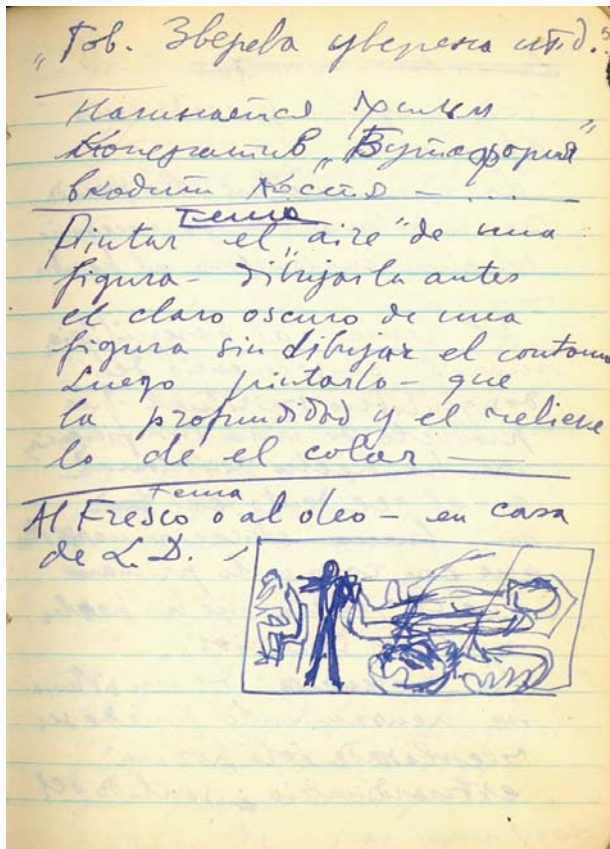 „Тов. Зверева уверена и т.д. 5
Начинается
Кооператив „Бутафория"
входит Костя — ....
Tema
Pintar el „aire" de una
figura - dibujarla antes
el claro oscuro de una
figura sin dibujar el contorno
Luego pintarlo - que
la profundidad y el relieve
lo dé el color —
Tema
Al Fresco o al oleo - en casa
de L.D.